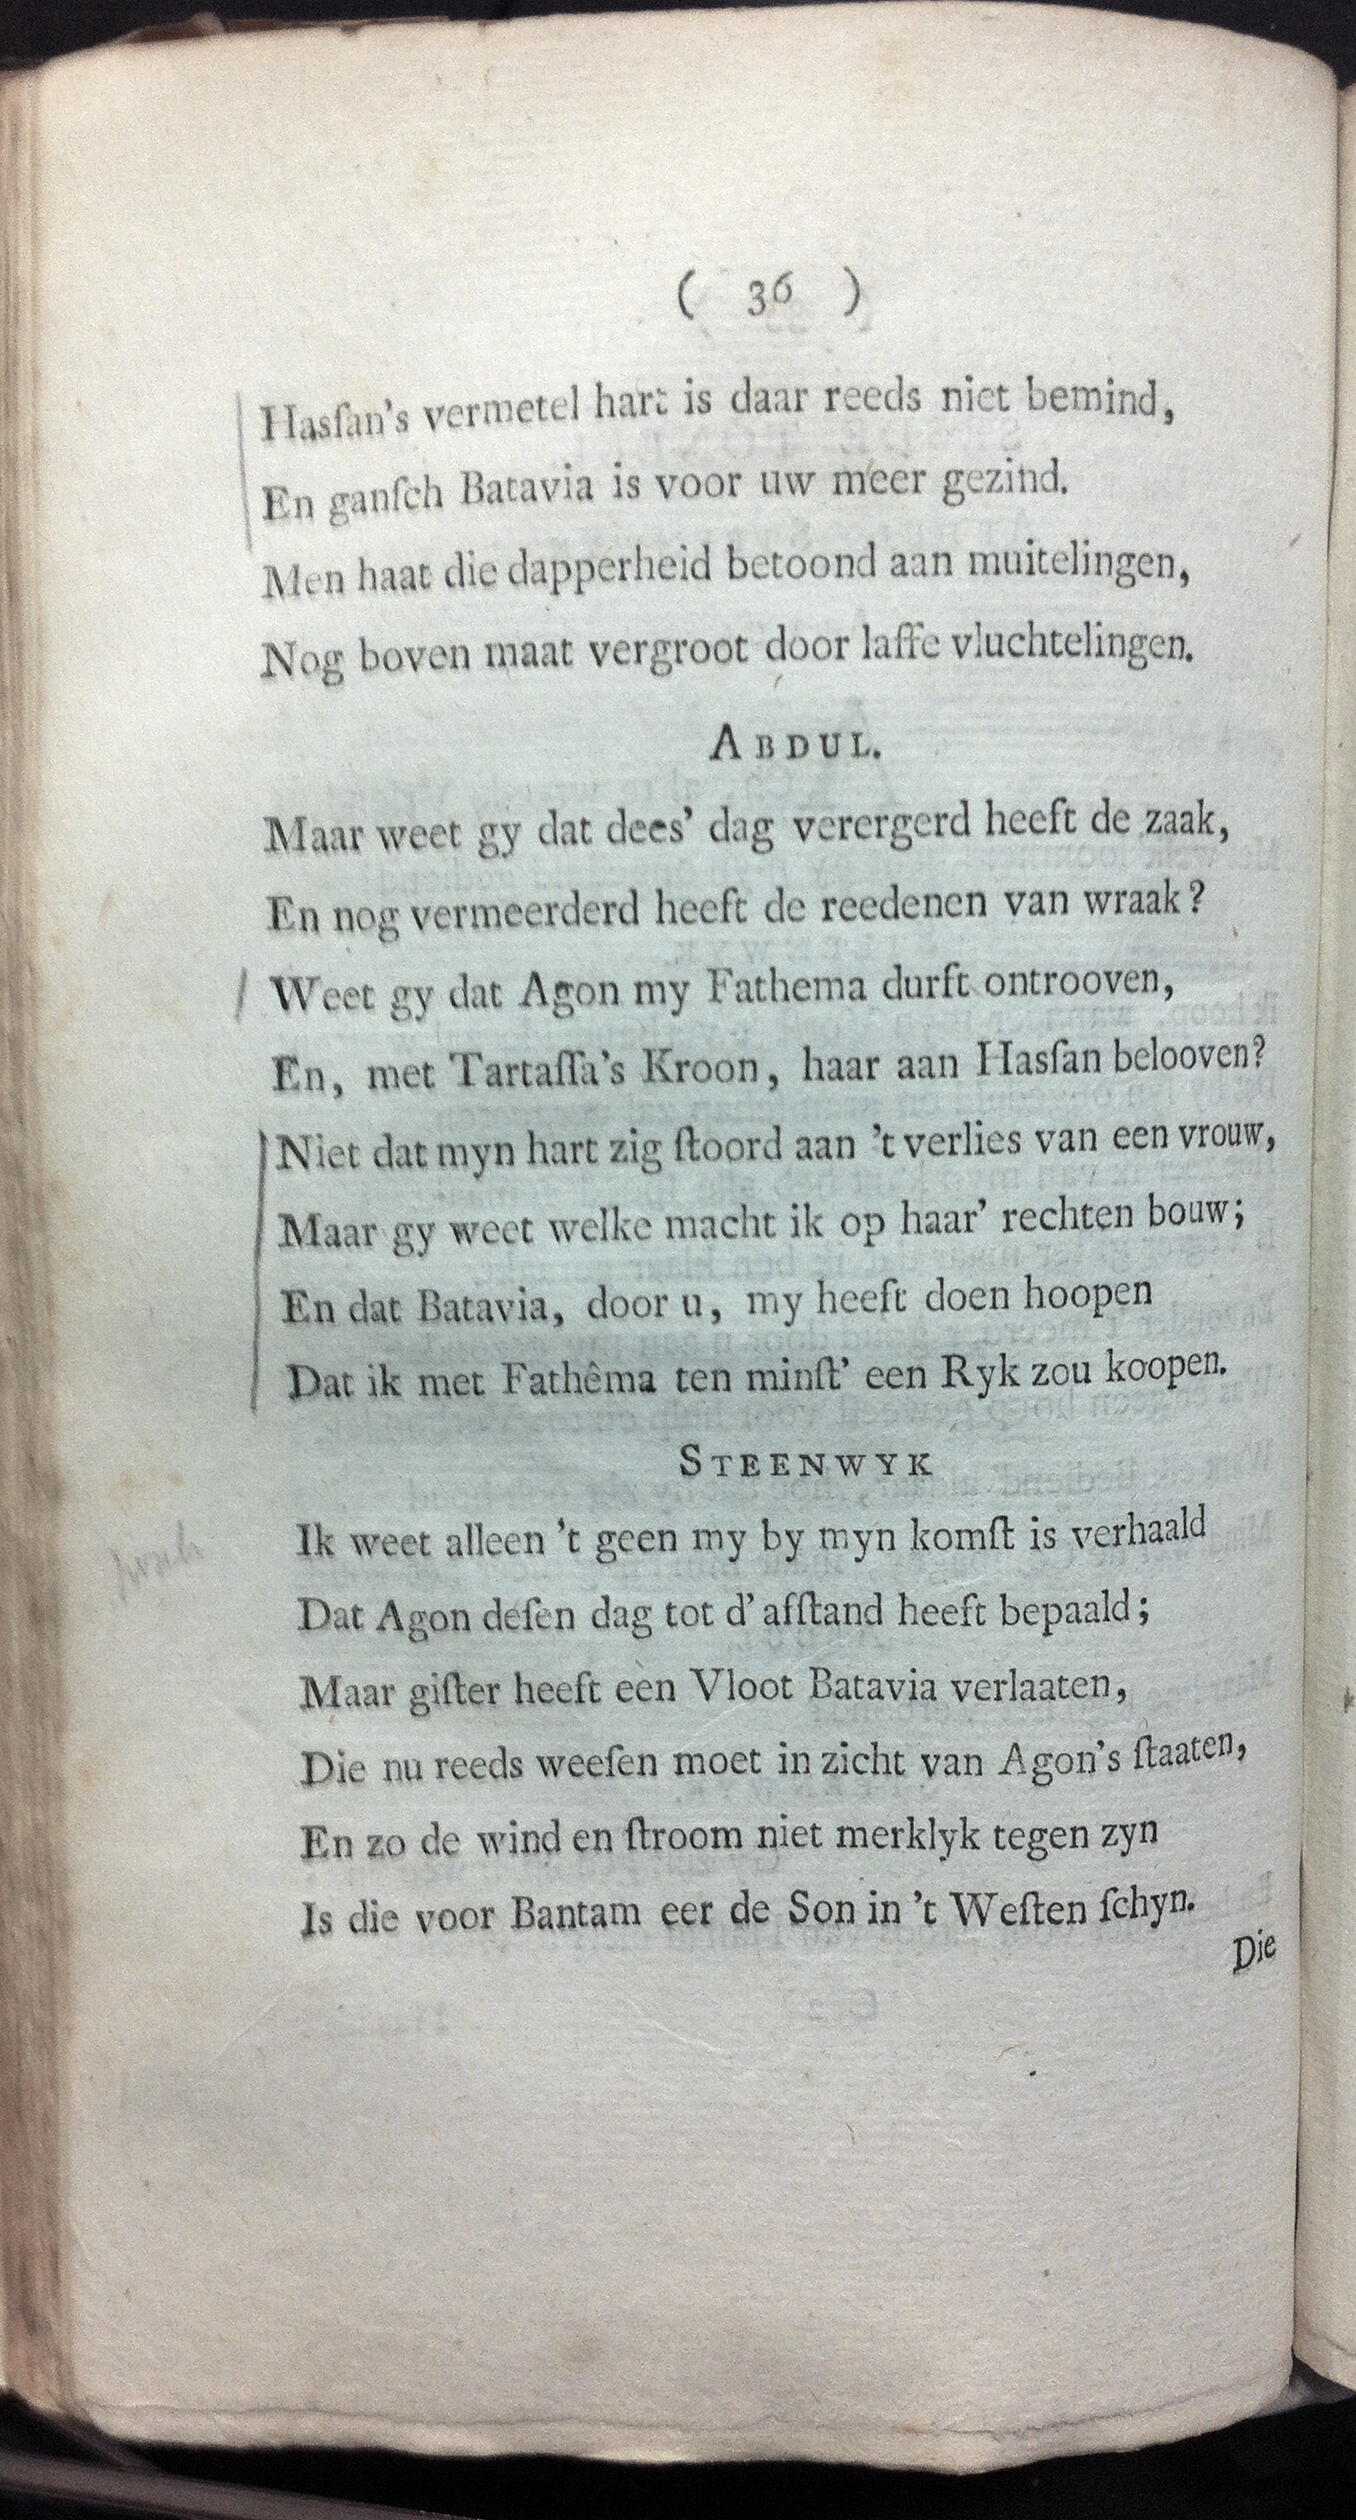 ( 36 )
Hasſan's vermetel hart is daar reeds niet bemind,
En ganſch Batavia is voor uw meer gezind.
Men haat die dapperheid betoond aan muitelingen,
Nog boven maat vergroot door laffe vluchtelingen.
ABDUL.
Maar weet gy dat dees' dag verergerd heeft de zaak,
En nog vermeerderd heeft de reedenen van wraak?
Weet gy dat Agon my Fathema durft ontrooven,
En, met Tartaſſa's Kroon, haar aan Hasſan belooven?
Niet dat myn hart zig ſtoord aan 't verlies van een vrouw,
Maar gy weet welke macht ik op haar' rechten bouw;
En dat Batavia, door u, my heeft doen hoopen
Dat ik met Fathêma ten minſt' een Ryk zou koopen.
STEENWYK
Ik weet alleen 't geen my by myn komſt is verhaald
Dat Agon deſen dag tot d' afſtand heeft bepaald;
Maar giſter heeft een Vloot Batavia verlaaten,
Die nu reeds weeſen moet in zicht van Agon's ſtaaten,
En zo de wind en ſtroom niet merklyk tegen zyn
Is die voor Bantam eer de Son in 't Weſten ſchyn.
Die